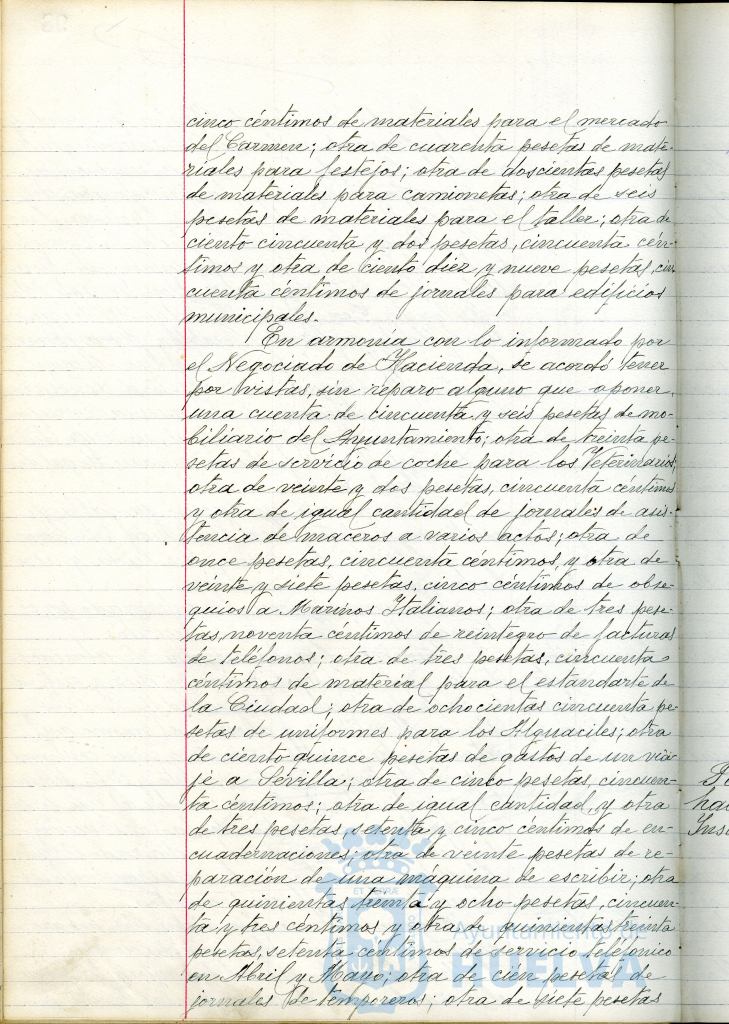 cinco céntimos de materiales para el mercado
del Carmen; otra de cuarenta pesetas de mate-
riales para festejos; otra de doscientas pesetas
de materiales para camionetas; otra de seis
pesetas de materiales para el taller; otra de
ciento cincuenta y dos pesetas, cincuenta cén-
timos y otra de ciento diez y nueve pesetas, cin
cuenta céntimos de jornales para edificios
municipales.-
En armonía con lo informado por
el Negociado de Hacienda, se acordó tener
por vistas, sin reparo alguno que oponer,
una cuenta de cincuenta y seis pesetas de mo-
biliario del Ayuntamiento; otra de treinta pe-
setas de servicio de coche para los Veterinarios;
otra de veinte y dos pesetas, cincuenta céntimos
y otra de igual cantidad de jornales de asis-
tencia de maceros a varios actos; otra de
once pesetas, cincuenta céntimos, y otra de
veinte y siete pesetas, cinco céntimos de obse-
quios a Marinos Italianos; otra de tres pese-
tas, noventa céntimos de reintegro de facturas
de teléfonos; otra de tres pesetas, cincuenta
céntimos de material para el estandarte de
la Ciudad; otra de ochocientas cincuenta pe-
setas de uniformes para los Alguaciles; otra
de ciento quince pesetas de gastos de un via-
je a Sevilla; otra de cinco pesetas, cincuen-
ta céntimos; otra de igual cantidad, y otra
de tres pesetas, setenta y cinco céntimos de en-
cuadernaciones; otra de veinte pesetas de re-
paración de una maquina de escribir; otra
de quinientas treinta y ocho pesetas, cincuen-
ta y tres céntimos y otra de quinientas treinta
pesetas, setenta céntimos de servicio telefónico
en Abril y Mayo; otra de cien pesetas de
jornales de temporeros; otra de siete pesetas
Ayuntamiento de
HUELVA